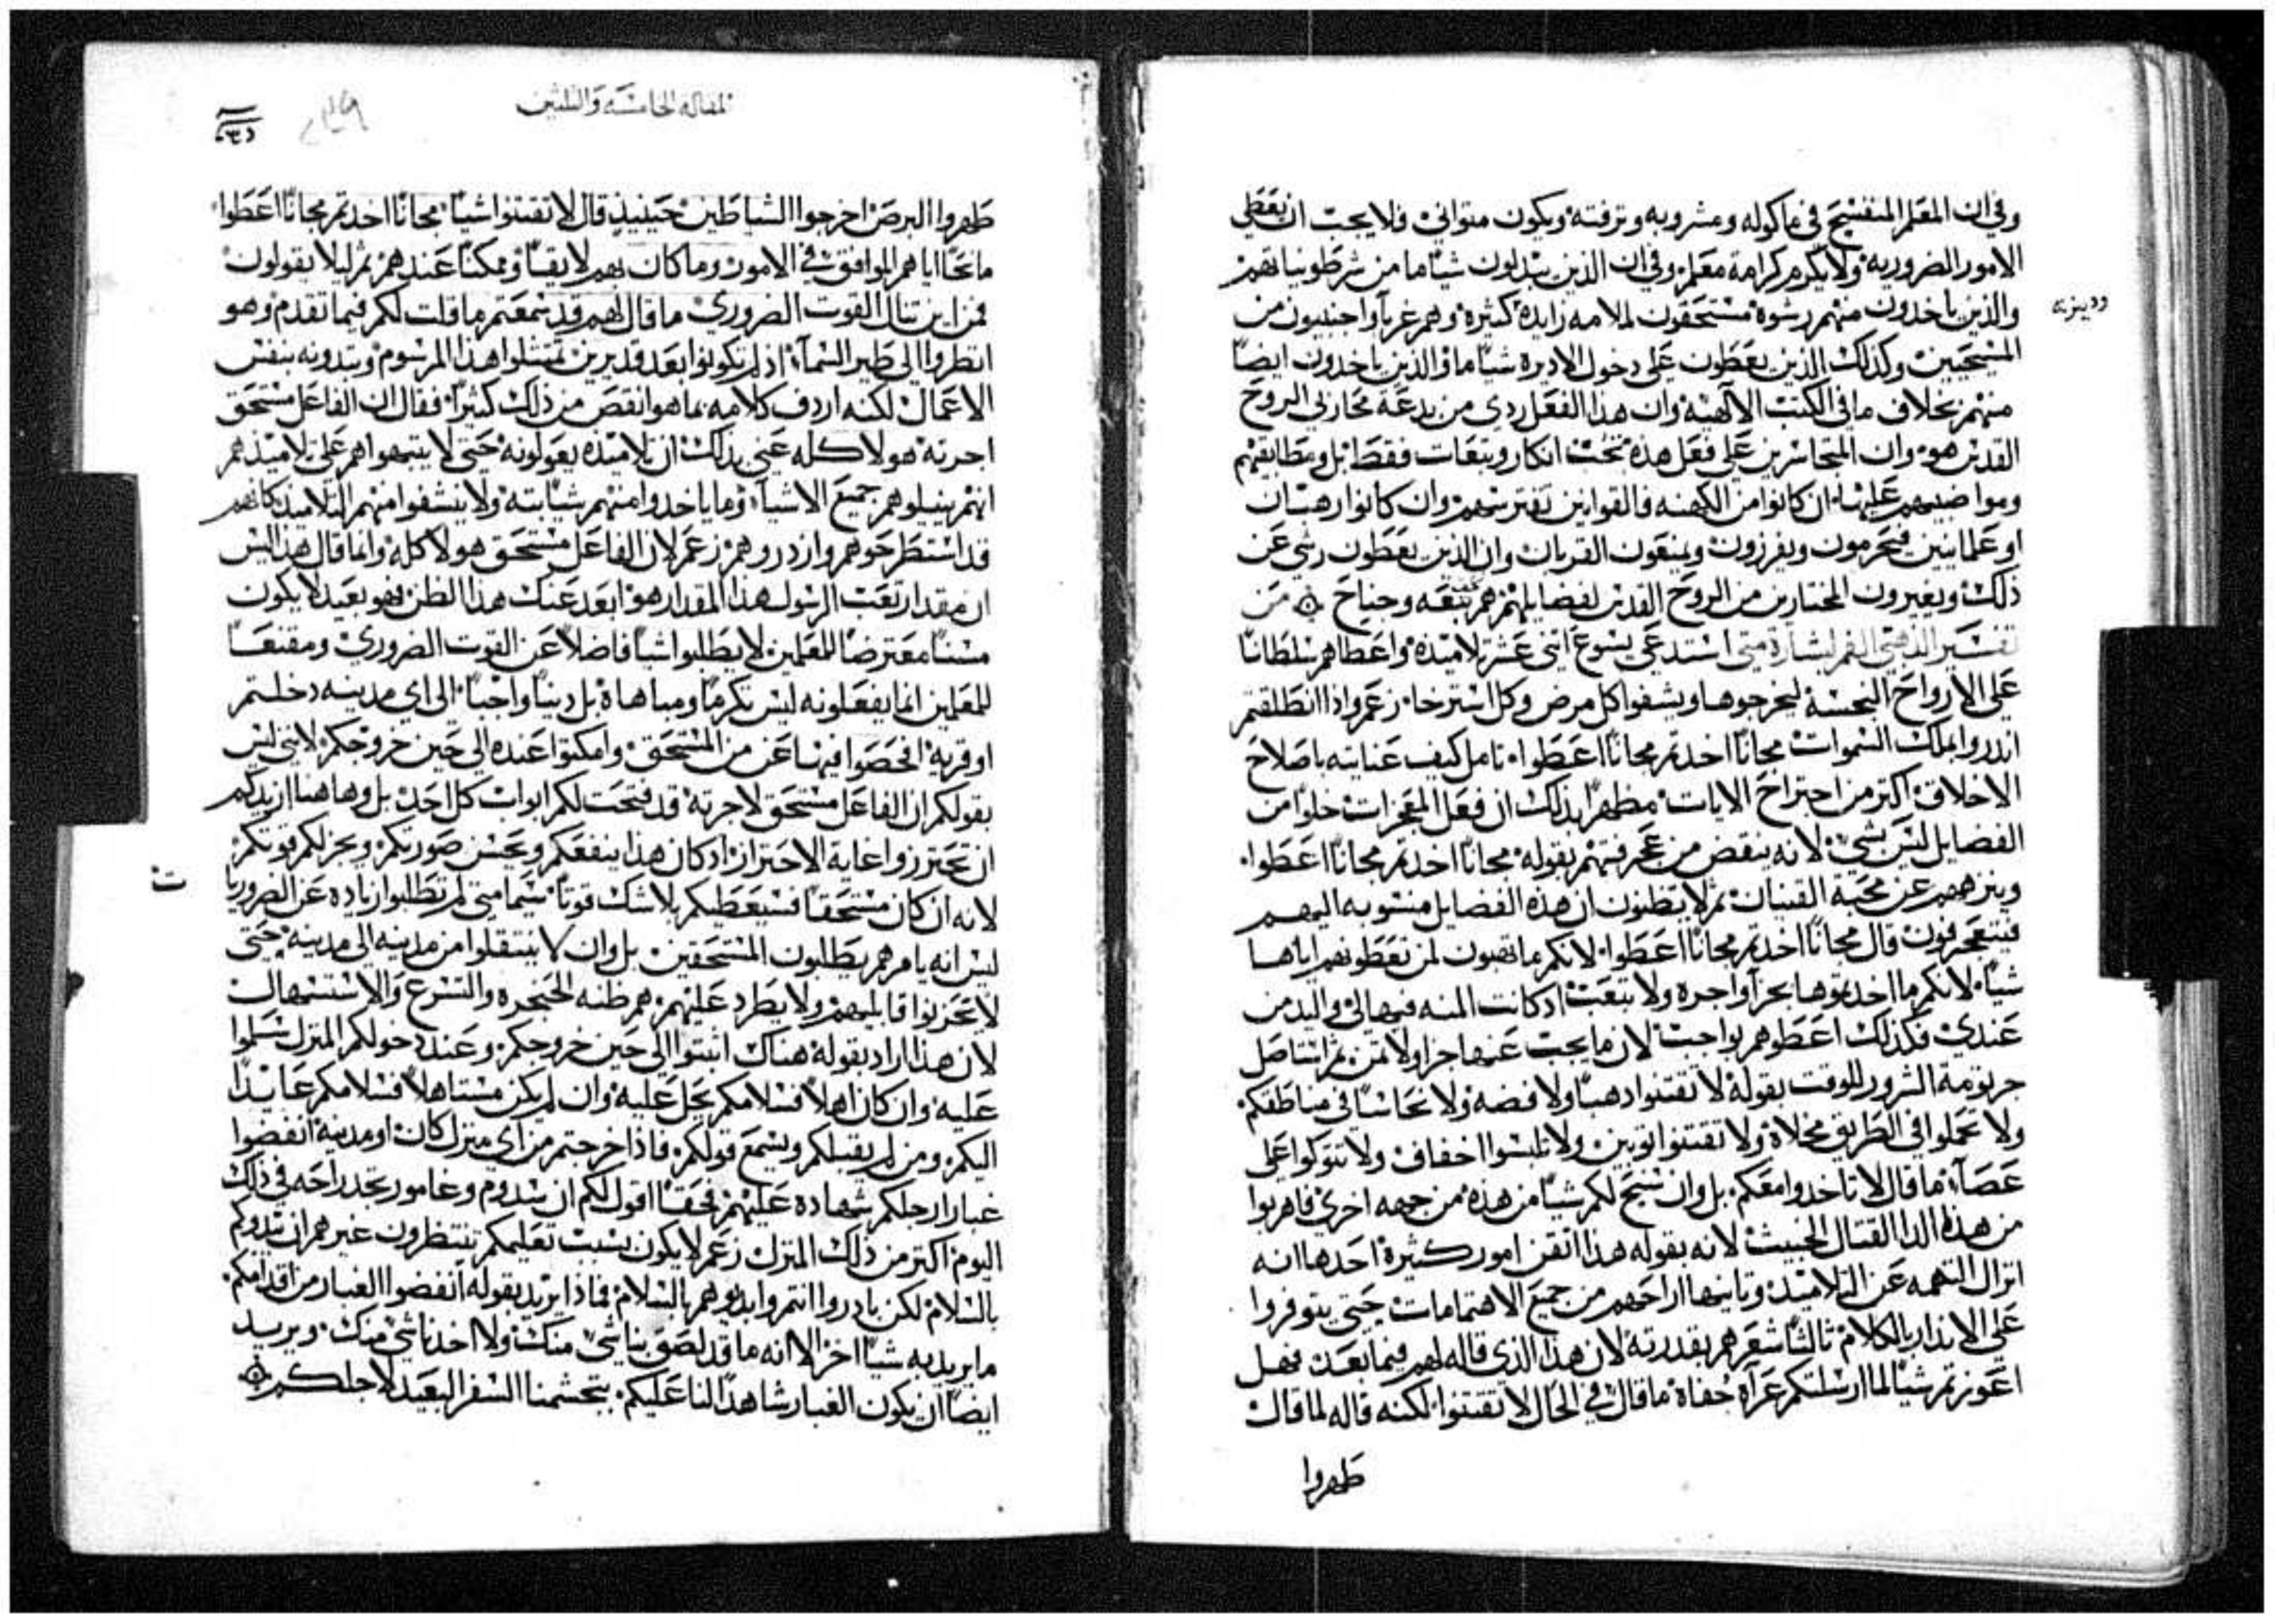 وفي ان المعلم المتفسح في ماكوله ومشروبه وترفته ويكون متواني فلا يجب ان يعطي
الامور الضروريه ولا يكرم كرامة معلم وفي ان الذين يبدلون شياً ما من شرطونياتهم
والذين ياخدون منهم رشوة مستحقون لملامه زايده كثيرة وهم غربآ واجنبيون من
المسيحيين وكذلك الذين يعطون على دخول الاديره شياً ما والذين ياخدون ايضاً
منهم بخلاف ما في الكتب الالهية وان هذا الفعل ردي من بدعة محاربي الروح
القدس هو وان المتجاسرين على فعل هذه تحت انكار وتبعات فقط بل ومطابقيهم
ومواضبيهم عليها ان كانوا من الكهنه فالقوانين تفترسهم وان كانوا رهبان
او علمانيين فيحرمون ويفرزون ويمنعون القربان وان الذين يعطون رشي عن
ذلك ويغيرون المختارين من الروح القدس لفضايلهم هم تبعه وجناح من
تفسير الذهبي الفم لبشارة متى استدعى يسوع اتني عشر تلاميذه واعطاهم سلطاناً
على الارواح النجسة ليخرجوها ويشفوا كل مرض وكل استرخا زعم واذا انطلقتم
اندروا بملك السموات مجاناً اخدتم مجاناً اعطوا تامل كيف عنايته باصلاح
الاخلاق اكتر من اجتراح الايات مظهراً بذلك ان فعل المعجزات خلواً من
الفضايل ليس بشي لانه ينقض من عجرفتهم بقوله مجاناً اخدتم مجاناً اعطوا
وينزههم عن محبة القنيان ثم لا يظنون ان هذه الفضايل منسوبه اليهم
فيتعجرفون قال مجاناً اخدتم مجاناً اعطوا لانكم ما تهبون لمن تعطونهم اياها
شياً لانكم ما اخدتموها بجزآ واجره ولا بتعب ادكانت المنه فيها لي واليد من
عندي فكذلك اعطوهم بواجب لان ما يجب عنها جزا ولا تمن ثم استاصل
جرثومة الشرور للوقت بقوله لا تقتنوا دهباً ولا فضه ولا نحاساً في مناطقكم
ولا تحملوا في الطريق مخلاة ولا تقتنوا توبين ولا تلبسوا اخفاف ولا تتوكوا على
عصآة ما قال لا تاخدوا معكم بل وان سنح لكم شياً من هذه من جهه اخري فاهربوا
من هذا الدا القتال الخبيث لانه بقوله هذا اتقن امور كثيرة احدها انه
ازال التهمه عن التلاميذ وتانيها اراحهم من جميع الاهتمامات حتى يتوفروا
على الانذار بالكلام ثالثاً شعرهم بقدرته لان هذا الذي قاله لهم فيما بعد فهل
اعوزتم شياً لما ارسلتكم عراة حفاة ما قال في الحال لا تقتنوا لكنه قاله لما قال
طهروا
المقاله الخامسه والتلتين
طهروا البرص اخرجوا الشياطين حينيذ قال لا تقتنوا شياً مجاناً اخدتم مجاناً اعطوا
مانحاً اياهم الموافق في الامور وما كان بهم لايقاً وممكناً عندهم ثم ليلا يقولون
فمن اين تنال القوت الضروري ما قال لهم قد سمعتم ما قلت لكم فيما تقدم وهو
انظروا الي طير السمآ اذ لم يكونوا بعد قديرين تمتثلوا هذا المرسوم وتبدونه بنفس
الاعمال لكنه اردف كلامه بما هو انقص من ذلك كثيراً فقال ان الفاعل مستحق
اجرته هولا كله عني بذلك ان تلاميذه يعولونه حتى لا يتبهوا هم على تلاميذهم
انهم ينيلوهم جميع الاشيا وما ياخدوا منهم شياً بته ولا ينشفوا منهم التلاميد كانهم
قد استطرحوهم وازدروهم زعم لان الفاعل مستحق هولا كله وانما قال هذا ليس
ان مقدار تعب الرسول هذا المقدار هو ابعد عنك هذا الظن فهو بعيد لا يكون
مسناً معترضاً للمعلمين لا يطلبوا شياً فاضلاً عن القوت الضروري ومقنعاً
للمعلمين انما يفعلونه ليس تكرماً ومباهاة بل ديناً واجباً الى اي مدينه دخلتم
او قرية افحصوا فيها عن من المستحق وامكتوا عنده الي حين خروجكم لانني ليس
بقولكم ان الفاعل مستحق لاجرته قد فتحت لكم ابواب كل احد بل وها هنا اريدكم
ان تحترزوا غاية الاحتراز اد كان هذا ينفعكم ويحسن صورتكم ويجزلكم قوتكم
لانه ان كان مستحقاً فسيعطيكم بلا شك قوتاً سيما متى لم تطلبوا زياده عن الضروريا
ت
ليس انه يامرهم يطلبون المستحقين بل وان لا ينتقلوا من مدينه الى مدينه حتى
لا تحزنوا قابليهم ولا يطرد عليهم هم ظنه الحنجره والتسرع والاستسهال
لان هذا اراد بقوله هناك اتبتوا الى حين خروجكم وعند دخولكم المنزل سلموا
عليه وان كان اهلاً فسلامكم يحل عليه وان لم يكن مستاهلاً فسلامكم عايداً
اليكم ومن لم يقبلكم ويسمع قولكم فاذا خرجتم من اي منزل كان او مدينة انفضوا
غبار ارجلكم شهاده عليهم فحقاً اقول لكم ان سدوم وغامور تجد راحه في ذلك
اليوم اكتر من ذلك المنزل زعم لا يكون بسبب تعليمكم تنتظرون غيرهم ان يبدوكم
بالسلام لكن بادروا انتم وابدوهم بالسلام فماذا يريد بقوله انفضوا الغبار من اقدامكم
ما يريد به شياً اخر الا انه ما قد لصق بنا شي منك ولا اخدنا شي منك ويريد
ايضاً ان يكون الغبار شاهداً لنا عليكم بتجشمنا السفر البعيد لاجلكم